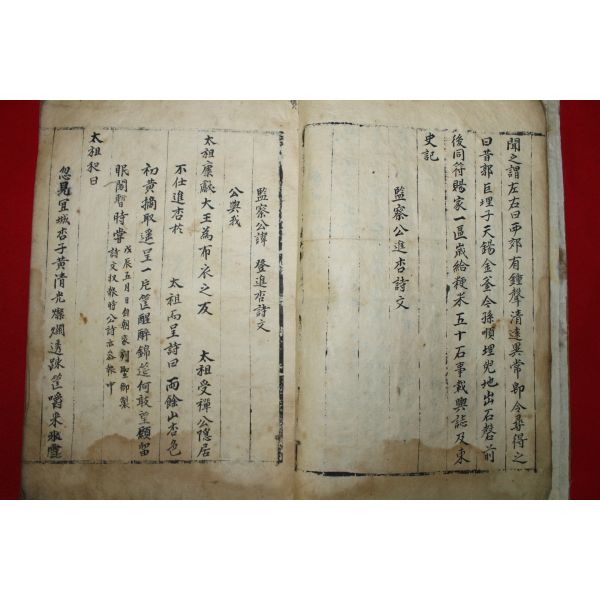 聞之謂左右曰西郊有鍾聲淸遠異常即令尋得之
曰昔郭巨埋子天錫金釜今孫順埋兒地出石磬前
後同符賜家一區歲給粳米五十石事載輿誌及東
史記
監察公進杏詩文
監察公諱 登進杏詩文
公與我
太祖康獻大王為布衣之友 太祖受禪公隱居
不仕進杏於 太祖而呈詩曰 雨餘山杏色
初黃摘取遙呈一片筐醒醉錦筵何敢望顧留
眠閣暫時嘗 戊辰五月日自朝家剝聖御製
詩文収報時公詩亦畣報中
太祖答曰
忽見宜城杏子黃淸光燦爛透踈筐嚼來氷雪